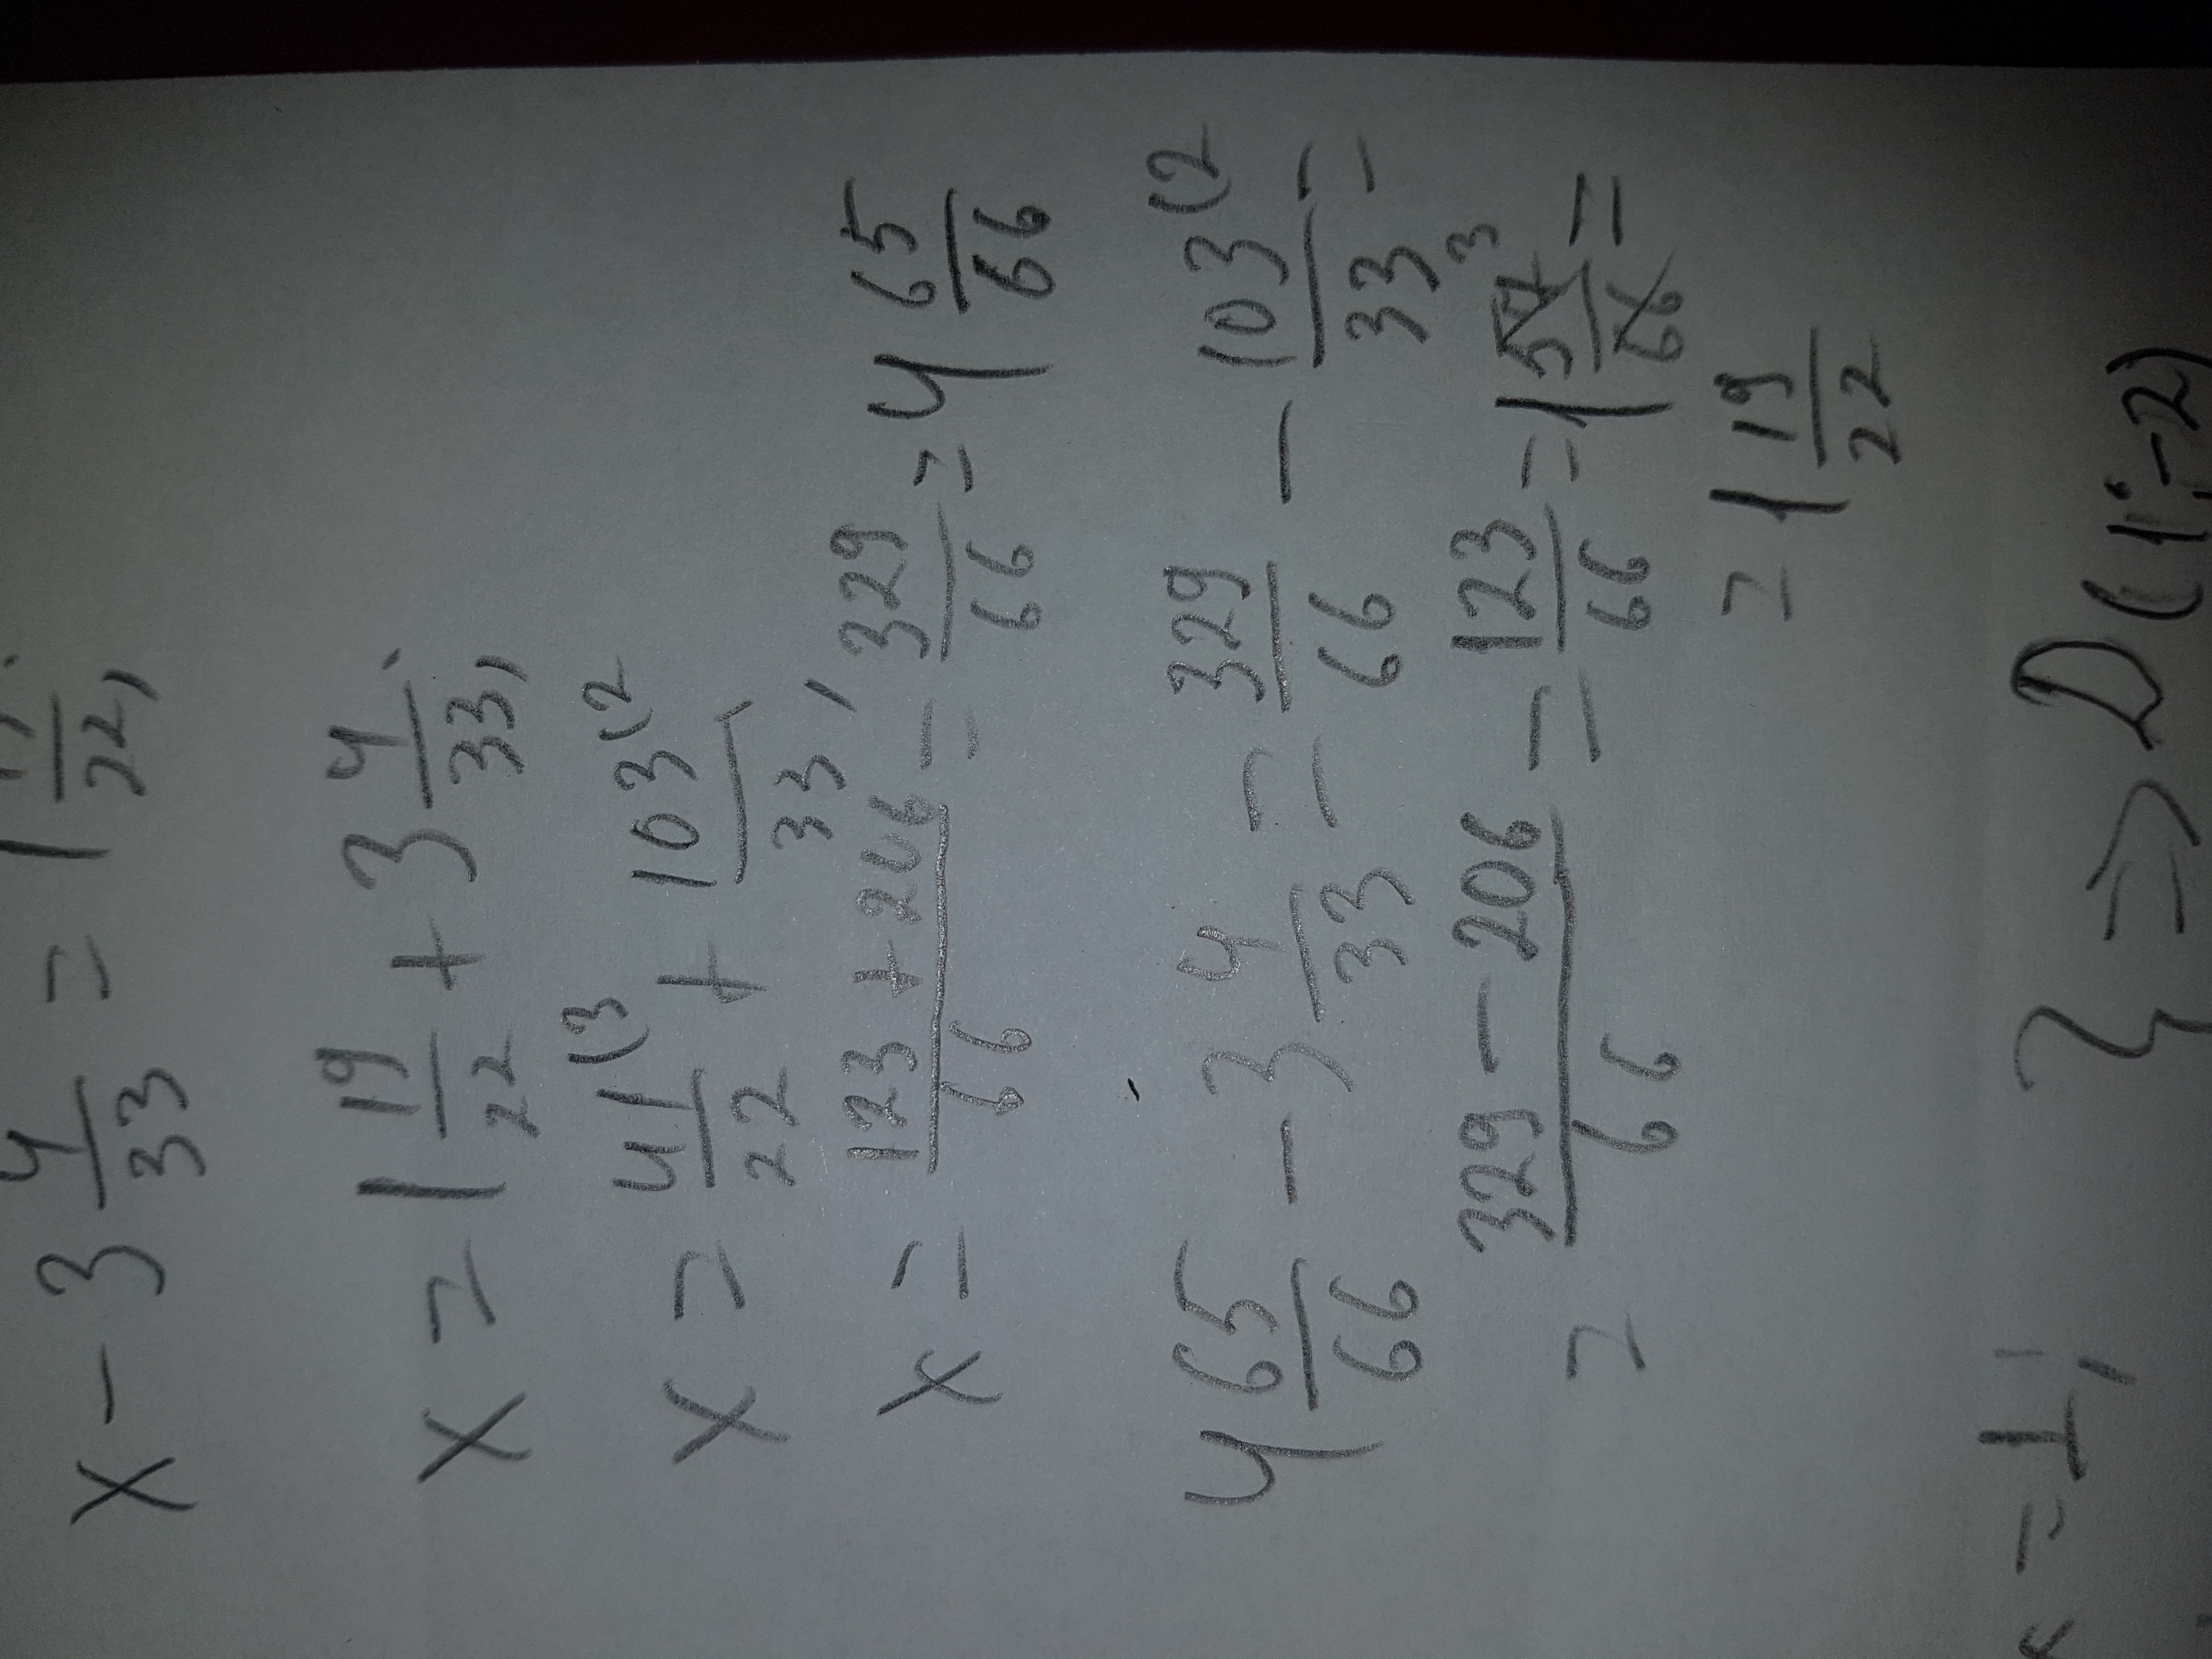 x - 3 4/33 = 1 /22,
x = 1 19/22 + 3 4/33,
x = 41/22 (3 + 103/33 (2,
x = 123 + 206/66 = 329/66 = 4 65/66
4 65/66 - 3 4/33 = 329/66 - 103/33 (2 =
= 329 - 206/66 = 123/66 = 1 57/66 =
= 1 19/22
= 1, } => D(1;-2)